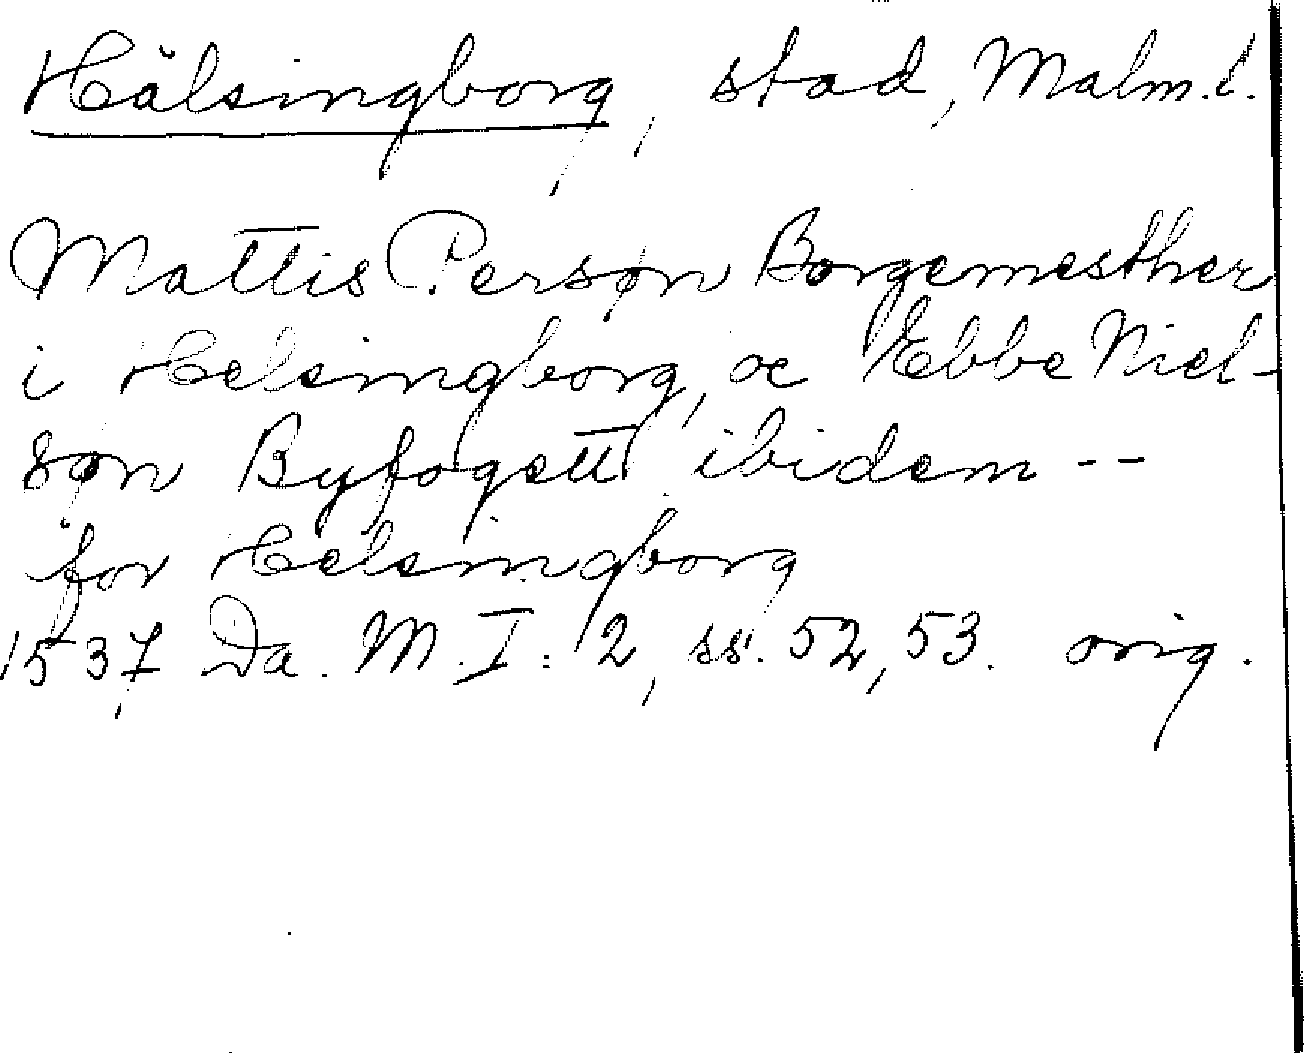 Hälsingborg, stad, Malm.l.
Mattis Persøn Borgemesther
i Helsingborg, oc Ebbe Niel-
søn Byfogett ibidem --
for Helsingborg
1537 Da. M. I: 2, ss. 52, 53. orig.